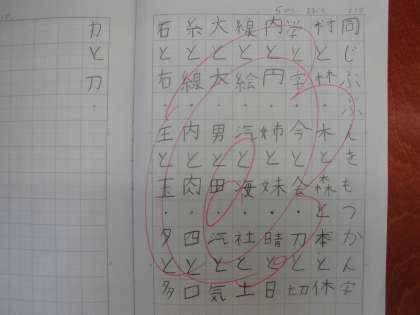 同じぶぶんをもつかん字
村と林・木と森と本と休
学と字・今と会・刀と切
内と円・姉と妹・晴と日
線と絵・汽と海・社と土
大と太・男と田・汽と気
糸と線・内と肉・四と口
石と右・王と玉・夕と多
力と刀・